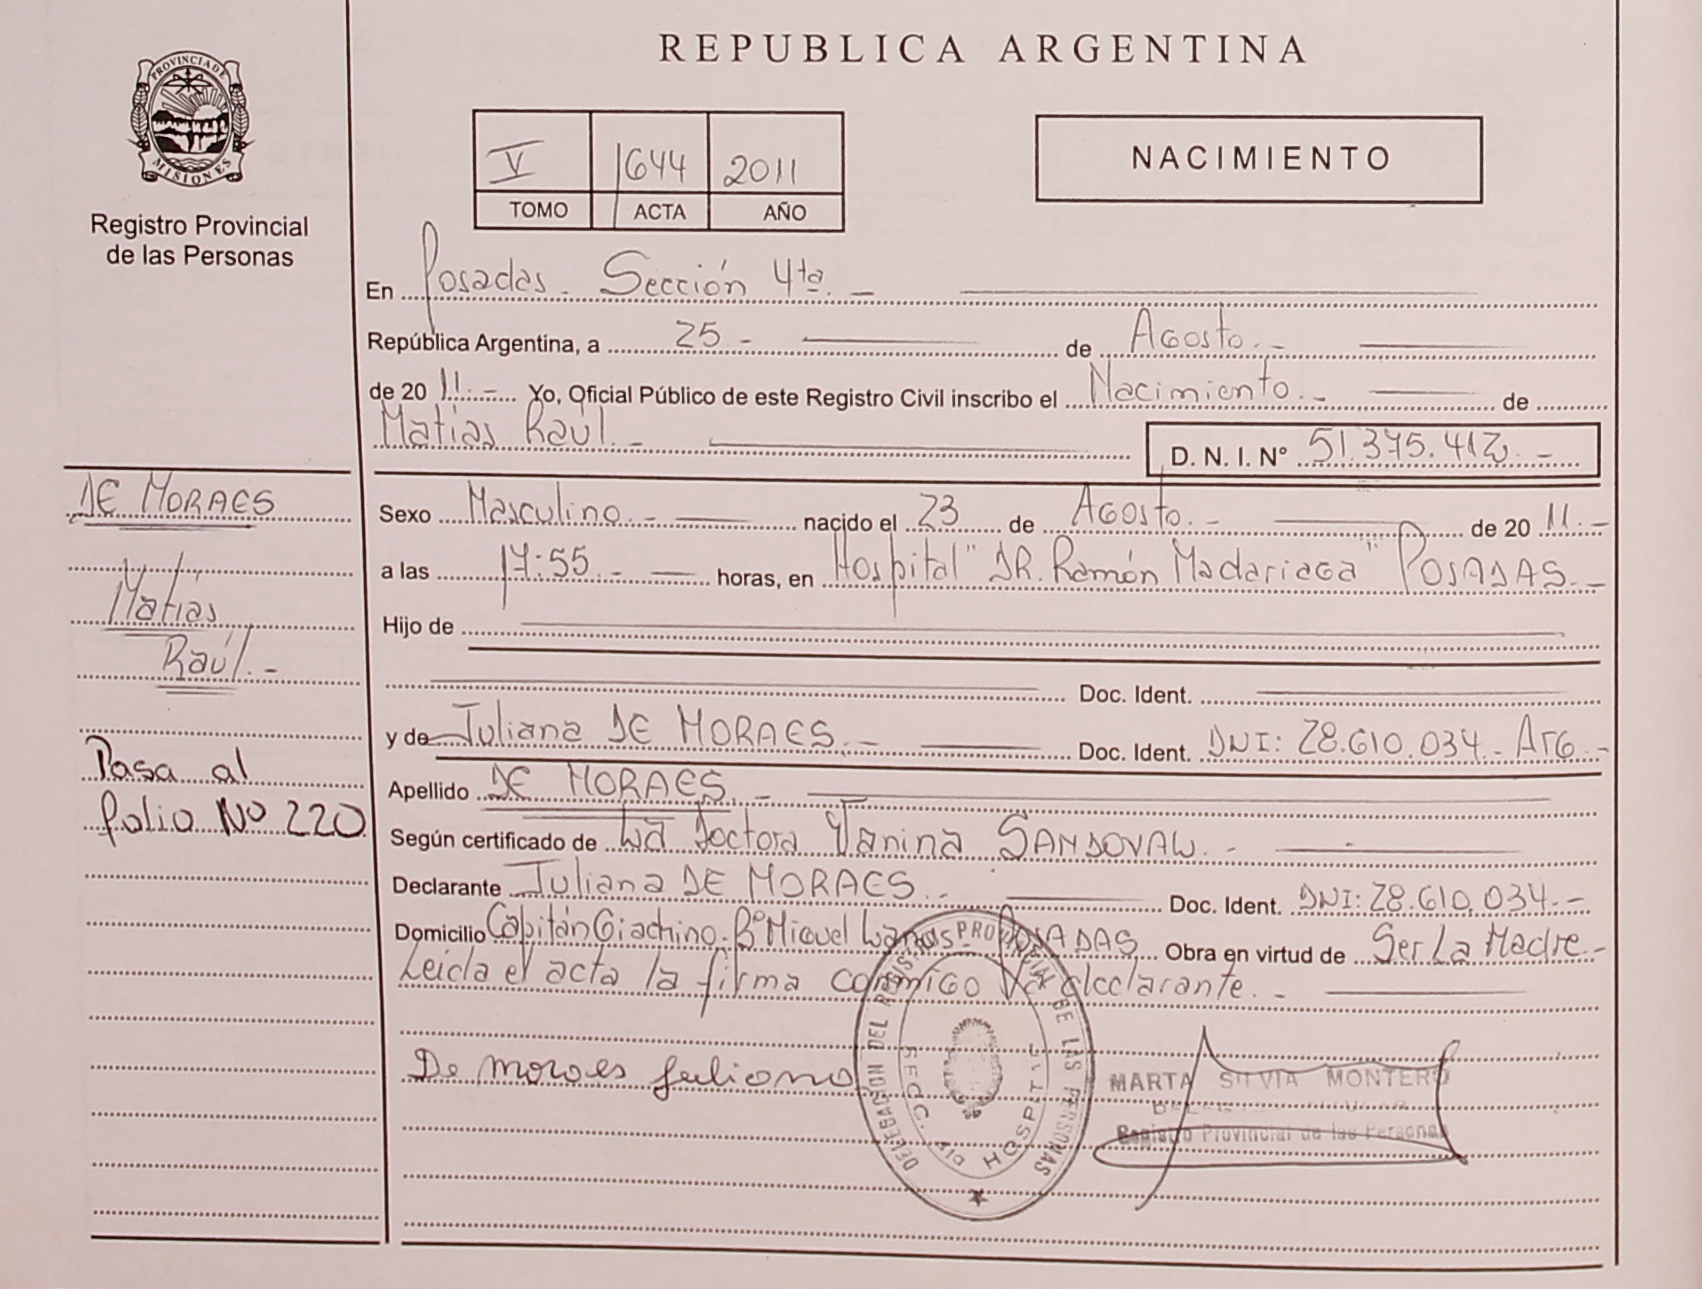 PROVINCIA DE
MISIONES
Registro Provincial
de las Personas
REPUBLICA ARGENTINA
V 1644 2011
TOMO ACTA AÑO
NACIMIENTO
En Posadas. Sección 4ta. -
República Argentina, a 25 - de Agosto. -
de 20 11. - Yo, Oficial Público de este Registro Civil inscribo el Nacimiento. - de
Matías Raúl. - D. N. I. N° 51.375.412. -
DE MORAES
Matías
Raúl. -
Pasa al
folio Nº 220
Sexo Masculino. - nacido el 23 de Agosto. - de 20 11. -
a las 17:55. - horas, en Hospital "DR. Ramón Madariaga" POSADAS. -
Hijo de
Doc. Ident.
y de Juliana DE MORAES. - Doc. Ident. DNI: 28.610.034 - Arg. -
Apellido DE MORAES. -
Según certificado de La Doctora Vanina SANDOVAL. -
Declarante Juliana DE MORAES. - Doc. Ident. DNI: 28.610.034. -
Domicilio Capitán Giachino. Bº Miguel Lanus - POSADAS. Obra en virtud de Ser La Madre. -
Leída el acta la firma conmigo la declarante. -
De moraes Juliana
DELEGACION DEL REGISTRO PROVINCIAL DE LAS PERSONAS
SECC. 4ta HOSPITAL
MARTA SILVIA MONTERO
Registro Provincial de las Personas